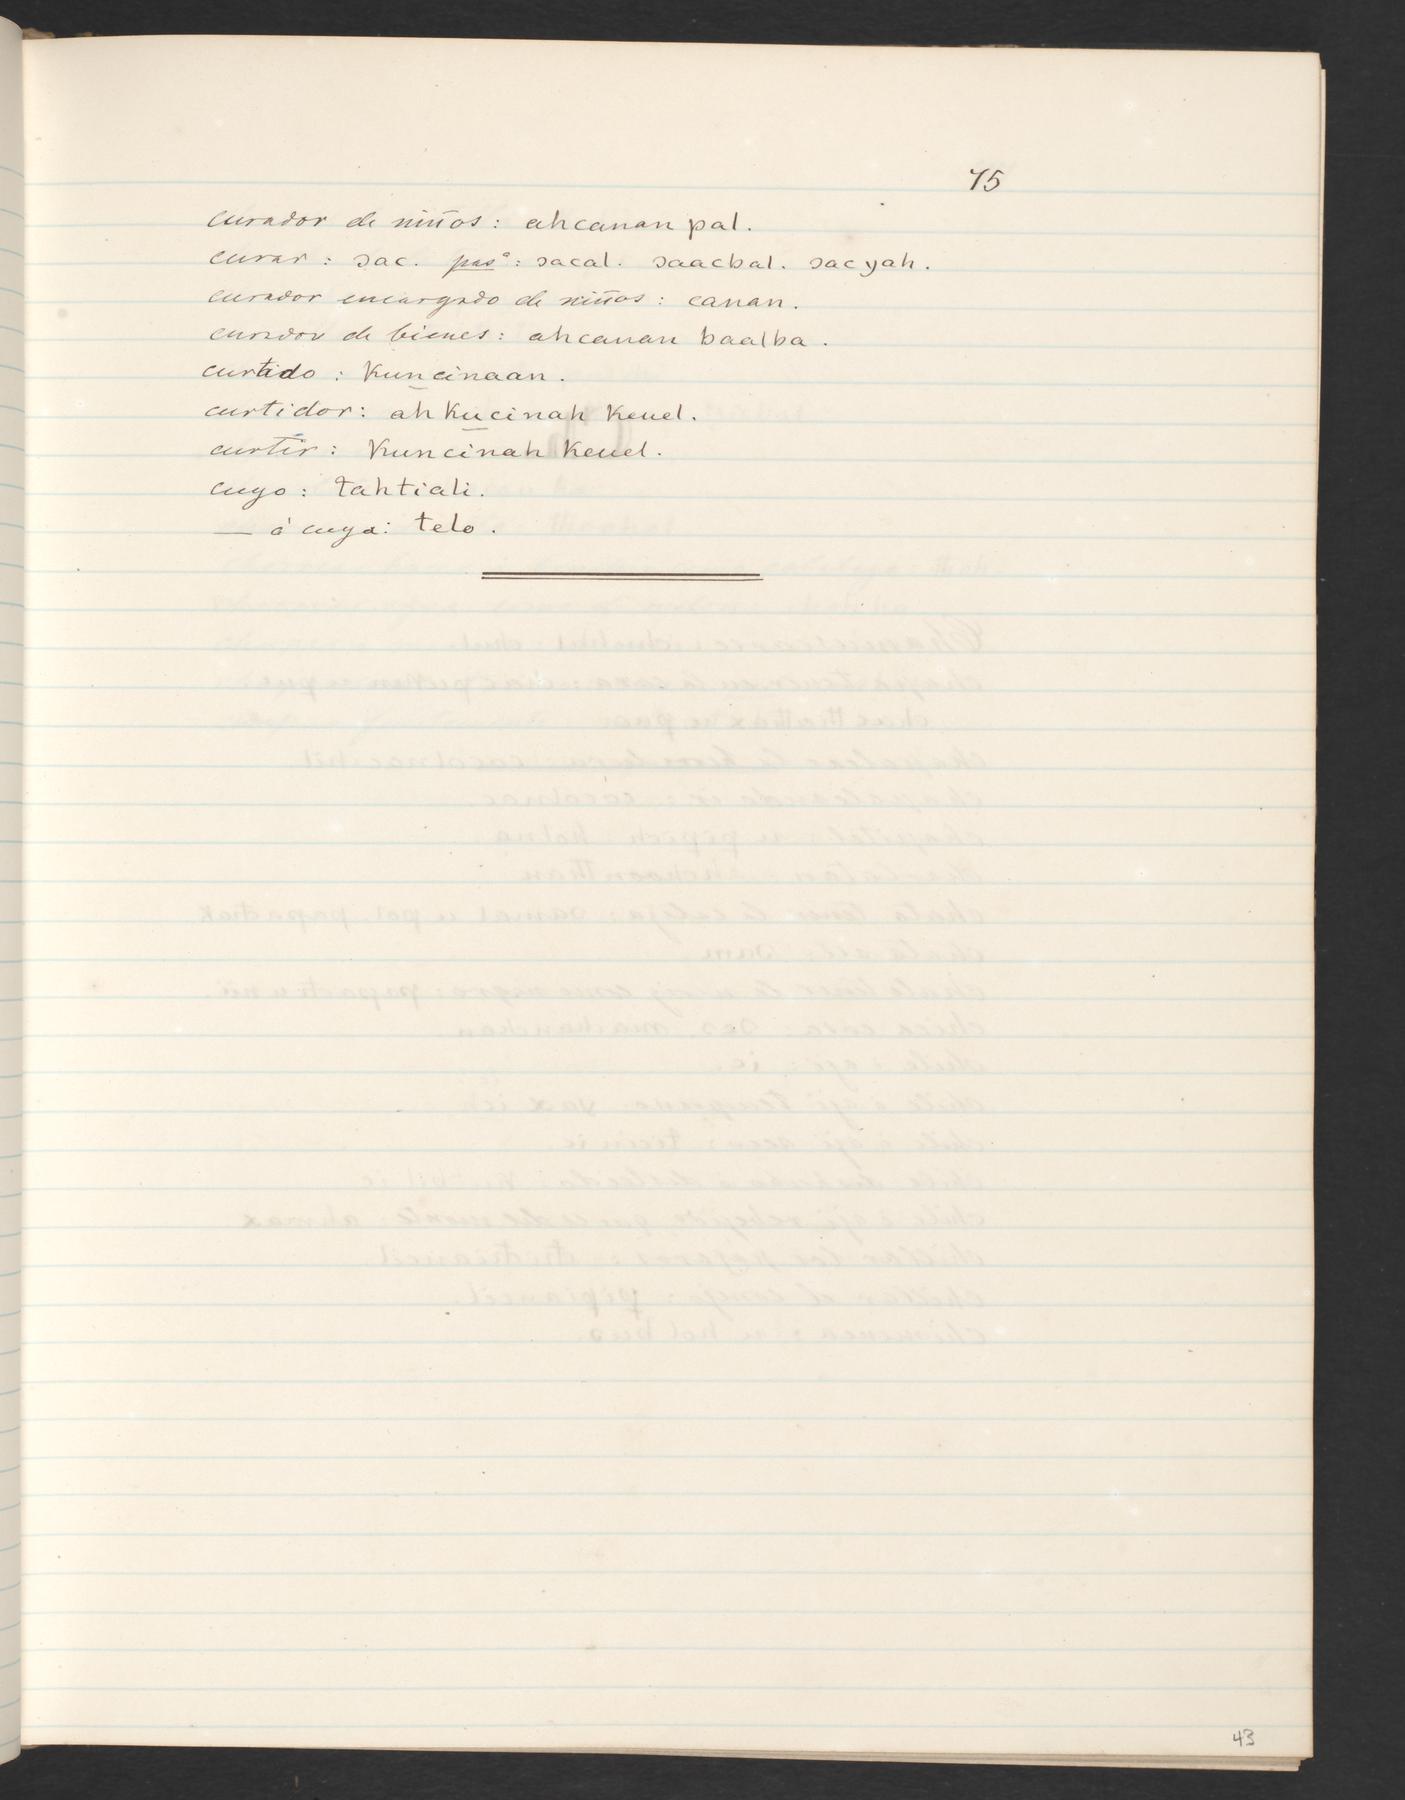 75
curador de niños: ahcanan pal.
curar: ɔac. pasᵒ: ɔacal. ɔaacbal. ɔacyah.
curador encargado de niños: canan.
curador de bienes: ahcanan baalba.
curtido: kuncinaan.
curtidor: ah kucinah keuel.
curtir: kuncinah keuel.
cuyo: tahtiali.
— á cuya: telo.
43